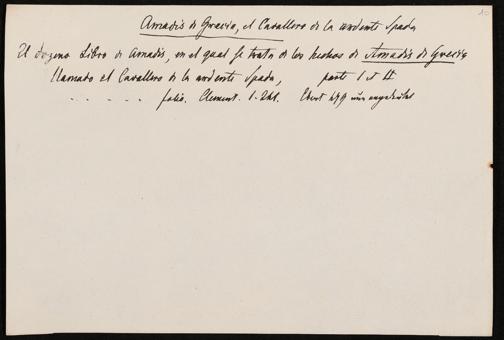 10
Amadis de Grecia, el Cavallero de la ardiente Spada
El dozeno Libro de Amadis, en el qual se trata de los hechos de Amadis de Grecia
llamado el Cavallero de la ardiente Spada, parte I et II
. . . . . . folio. Clement. 1. 241. Ebert 479